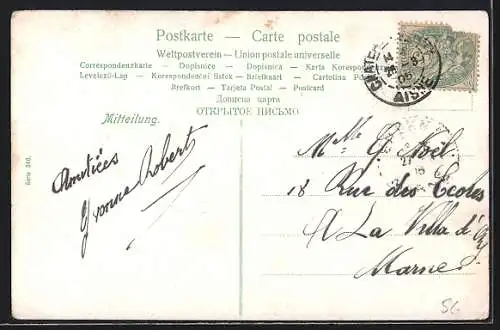 Postkarte - Carte postale
Weltpostverein - Union postale universelle
Correspondenzkarte - Dopisnice - Dopisnica - Karta Korespon
Levelező-Lap - Korespondenční lístek - Brefkaart - Cartolina Po
Brefkort - Tarjeta Postal - Postcard
Дописна карта
ОТКРЫТОЕ ПИСЬМО
Mitteilung.
Amitiés
Yvonne Robert
Serie 340.
AISNE
Mlle G Noël
18 Rue des Ecoles
A La Villa d'Ay
Marne